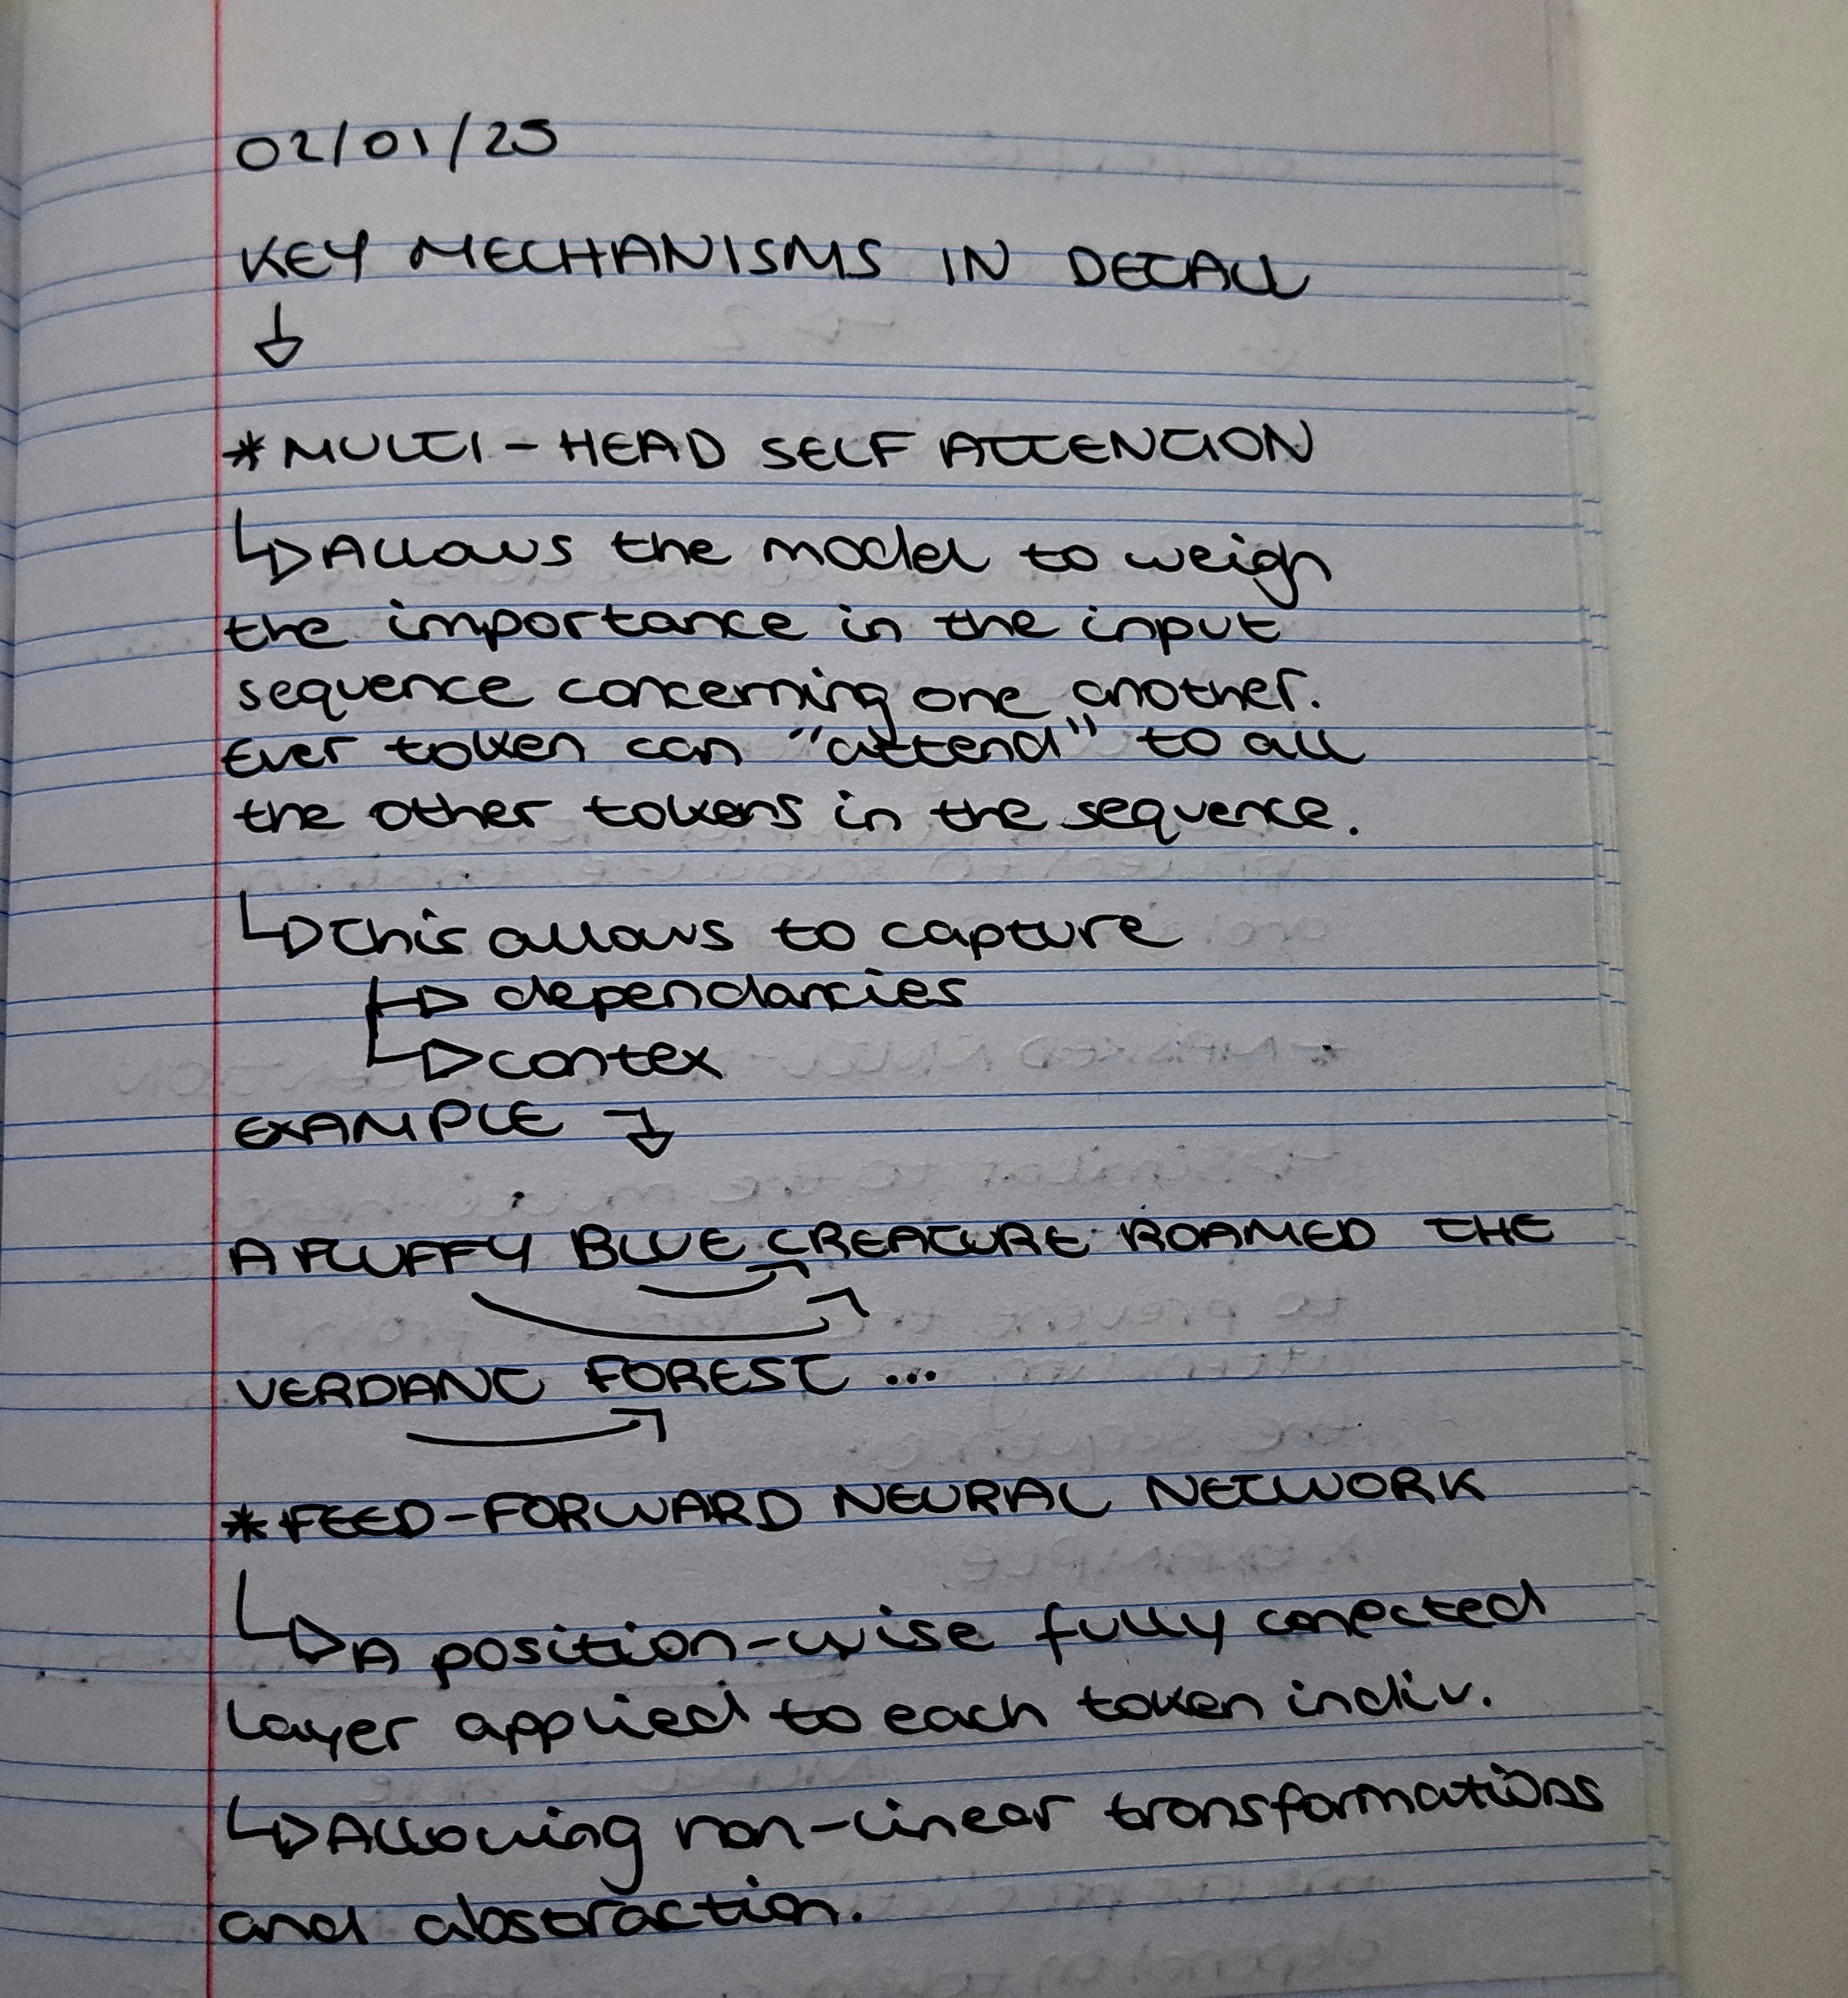 02/01/25
KEY MECHANISMS IN DETAIL
* MULTI-HEAD SELF ATTENTION
Allows the model to weigh
the importance in the input
sequence concerning one another.
Ever token can "attend" to all
the other tokens in the sequence.
This allows to capture
dependancies
contex
EXAMPLE
A FLUFFY BLUE CREATURE ROAMED THE
VERDANT FOREST ...
* FEED-FORWARD NEURAL NETWORK
A position-wise fully conected
layer applied to each token indiv.
Allowing non-linear transformations
and abstraction.